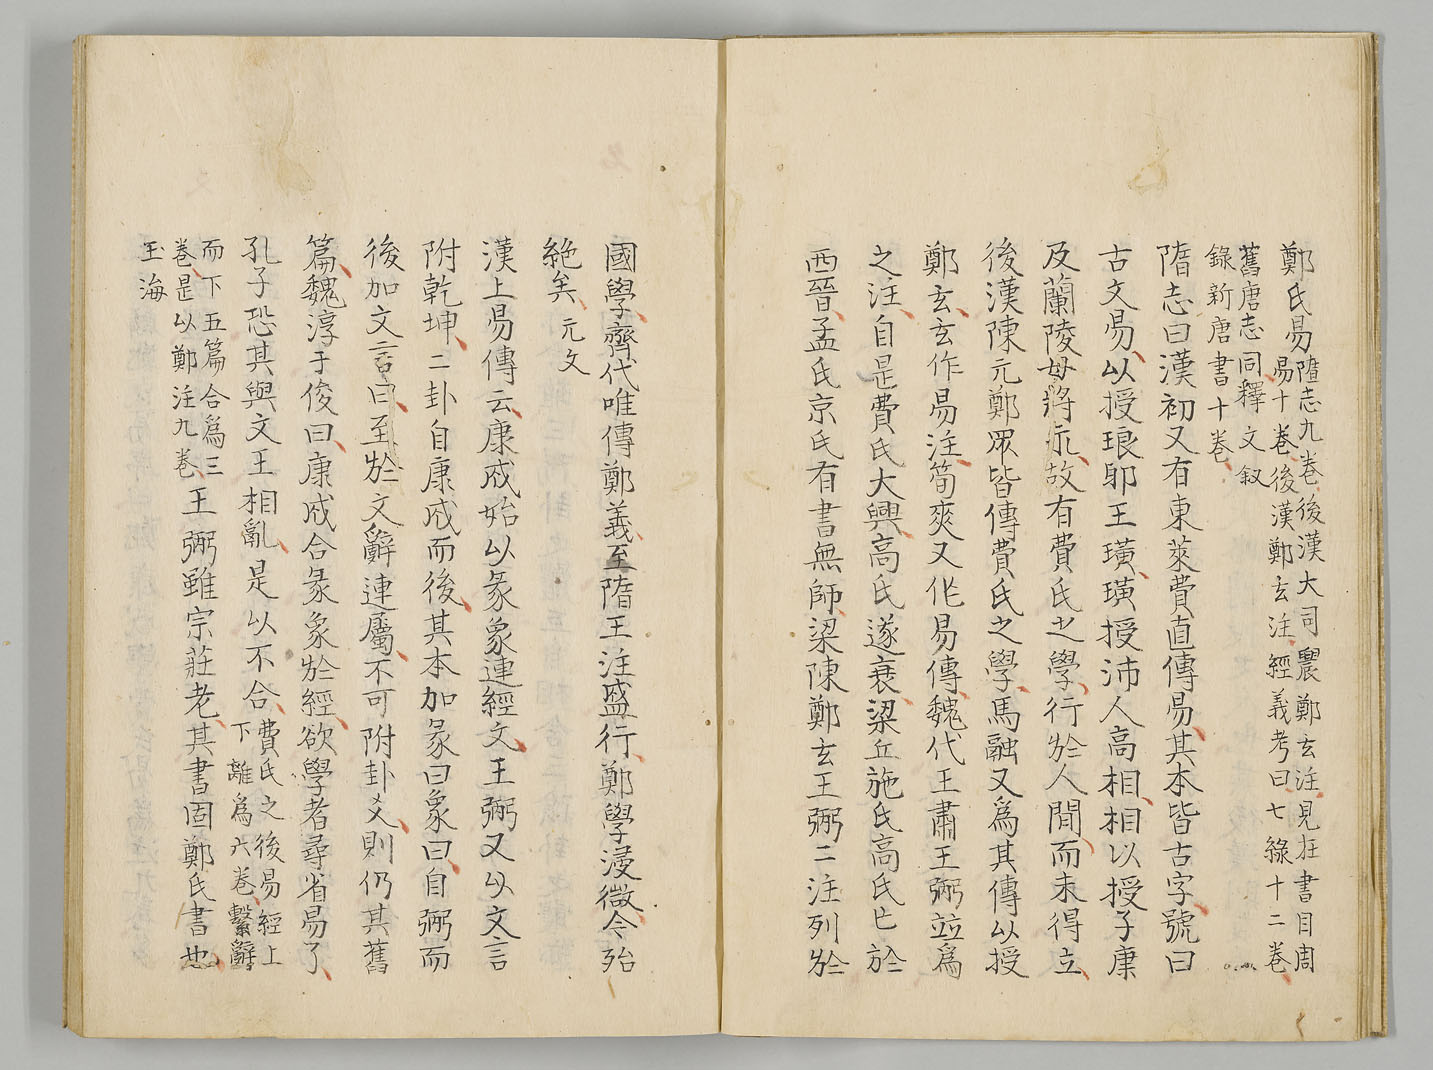 鄭氏易隋志九卷後漢大司農鄭玄注見在書目周
易十卷後漢鄭玄注經義考曰七錄十二卷
舊唐志同釋文叙
錄新唐書十卷
隋志曰漢初又有東萊費直傳易其本皆古字號曰
古文易以授琅邪王璜璜授沛人高相相以授子康
及蘭陵毋將永故有費氏之學行於人間而未得立
後漢陳元鄭眾皆傳費氏之學馬融又爲其傳以授
鄭玄玄作易注荀爽又作易傳魏代王肅王弼並爲
之注自是費氏大興高氏遂衰梁丘施氏高氏亡於
西晉孟氏京氏有書無師梁陳鄭玄王弼二注列於
國學齊代唯傳鄭義至隋王注盛行鄭學浸微今殆
絶矣元文
漢上易傳云康成始以彖象連經文王弼又以文言
附乾坤二卦自康成而後其本加彖曰象曰自弼而
後加文言曰至於文辭連屬不可附卦爻則仍其舊
篇魏淳于俊曰康成合彖象於經欲學者尋省易了
孔子恐其與文王相亂是以不合費氏之後易經上
下離爲六卷繫辭
而下五篇合爲三
卷是以鄭注九卷王弼雖宗莊老其書固鄭氏書也
玉海